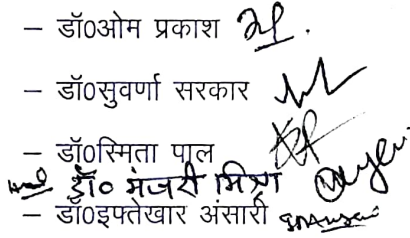 – डॉ0ओम प्रकाश
– डॉ0सुवर्णा सरकार
– डॉ0स्मिता पाल
डॉ० मंजरी मित्रा
– डॉ0इफ्तेखार अंसारी